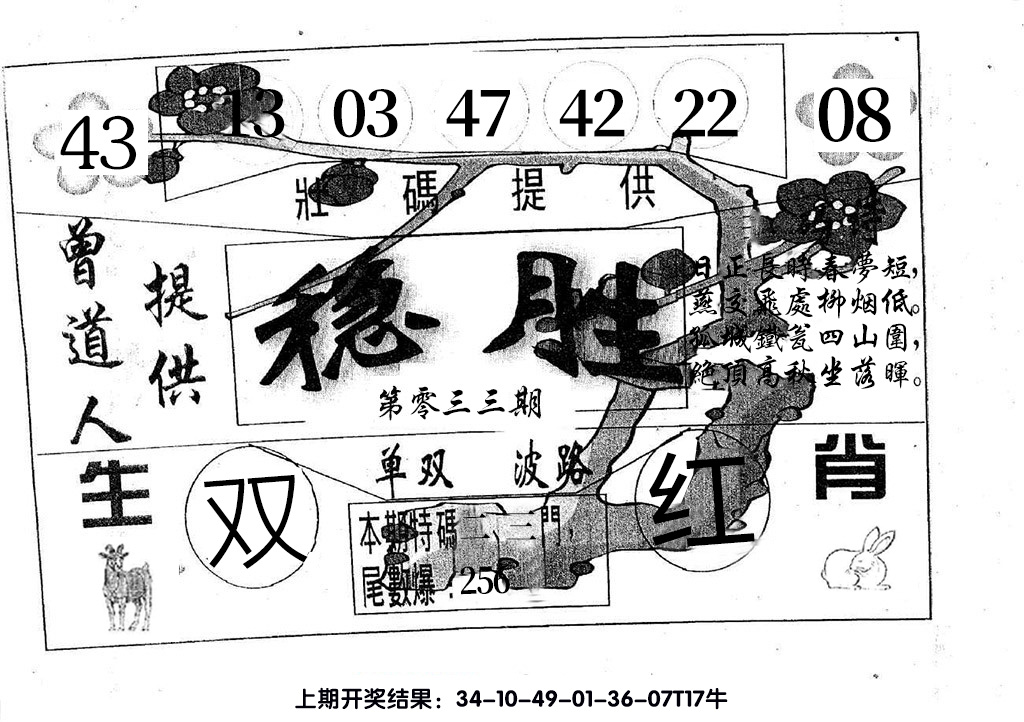 43 13 03 47 42 22 08
壯碼提供
曾道人
提供
稳胜
第零三三期
日正長時春夢短，
燕交飛處柳烟低。
孤城鐵瓮四山圍，
絶頂高秋坐落暉。
生肖
单双 波路
双
红
本期特碼二、三門，
尾數爆：256
上期开奖结果：34-10-49-01-36-07T17牛